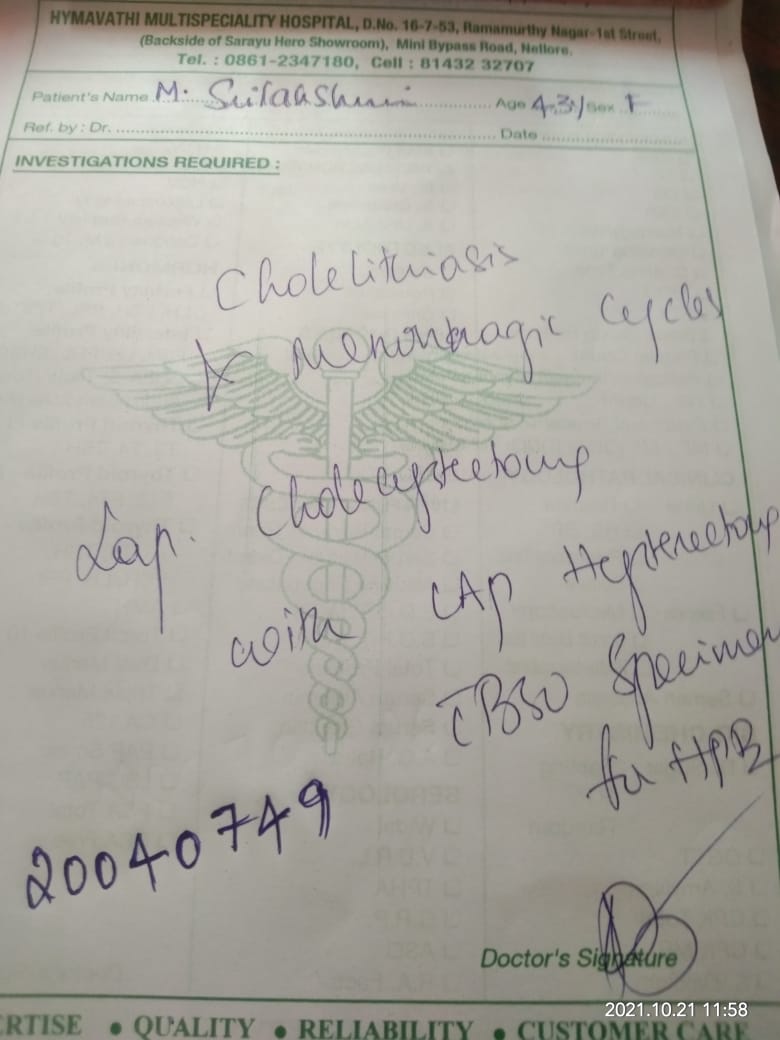 HYMAVATHI MULTISPECIALITY HOSPITAL, D.No. 16-7-53, Ramamurthy Nagar-1st Street,
(Backside of Sarayu Hero Showroom), Mini Bypass Road, Nellore.
Tel. : 0861-2347180, Cell : 81432 32707
Patient's Name M. Age 43y Sex F
Ref. by : Dr. Date
INVESTIGATIONS REQUIRED :
Cholelithiasis
Menorrhagic Cycles
Lap. Cholecystectomy
with LAp Hysterectomy
c̄ BSO Specimen
for HPE
20040749
Doctor's Signature
2021.10.21 11:58
ERTISE • QUALITY • RELIABILITY • CUSTOMER CARE